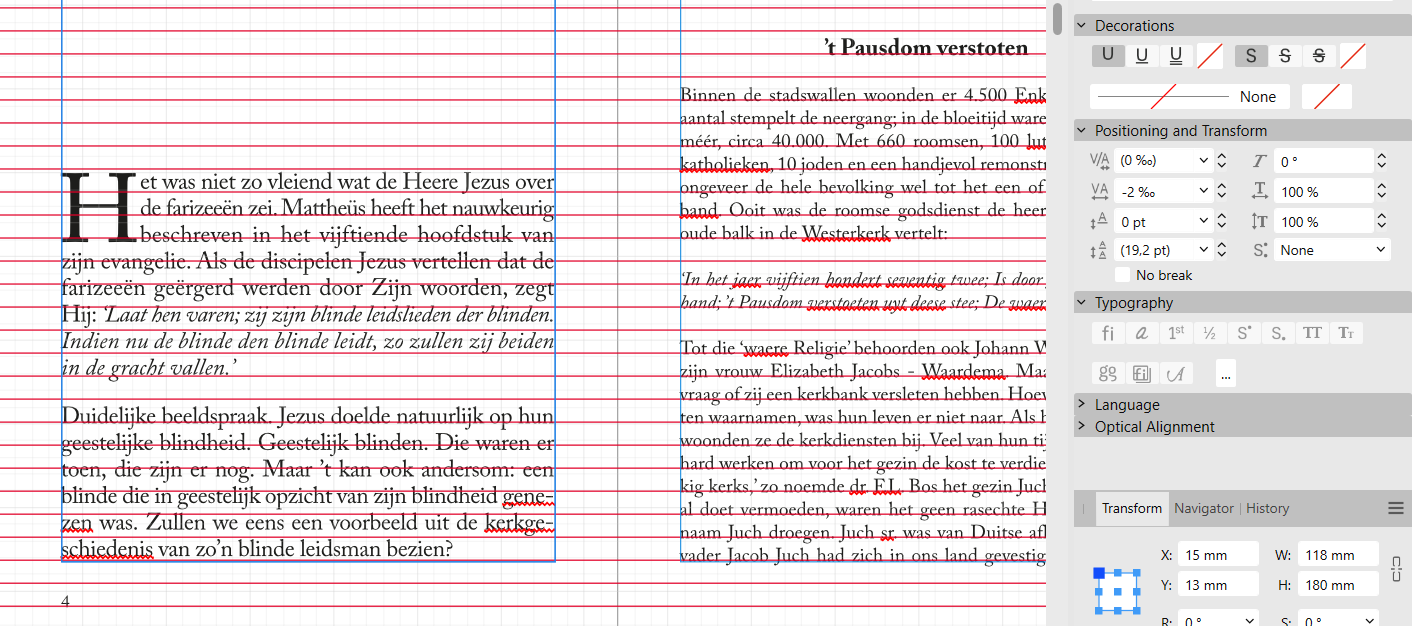 Het was niet zo vleiend wat de Heere Jezus over
de farizeeën zei. Mattheüs heeft het nauwkeurig
beschreven in het vijftiende hoofdstuk van
zijn evangelie. Als de discipelen Jezus vertellen dat de
farizeeën geërgerd werden door Zijn woorden, zegt
Hij: ‘Laat hen varen; zij zijn blinde leidslieden der blinden.
Indien nu de blinde den blinde leidt, zo zullen zij beiden
in de gracht vallen.’
Duidelijke beeldspraak. Jezus doelde natuurlijk op hun
geestelijke blindheid. Geestelijk blinden. Die waren er
toen, die zijn er nog. Maar ’t kan ook andersom: een
blinde die in geestelijk opzicht van zijn blindheid gene-
zen was. Zullen we eens een voorbeeld uit de kerkge-
schiedenis van zo’n blinde leidsman bezien?
4
’t Pausdom verstoten
Binnen de stadswallen woonden er 4.500 Enk
aantal stempelt de neergang; in de bloeitijd ware
méér, circa 40.000. Met 660 roomsen, 100 lut
katholieken, 10 joden en een handjevol remonstr
ongeveer de hele bevolking wel tot het een of
band. Ooit was de roomse godsdienst de heer
oude balk in de Westerkerk vertelt:
‘In het jaer vijftien hondert seventig twee; Is door
hand; ’t Pausdom verstoeten uyt deese stee; De waer
Tot die ‘waere Religie’ behoorden ook Johann W
zijn vrouw Elizabeth Jacobs - Waardema. Maa
vraag of zij een kerkbank versleten hebben. Hoev
ten waarnamen, was hun leven er niet naar. Als h
woonden ze de kerkdiensten bij. Veel van hun tij
hard werken om voor het gezin de kost te verdie
kig kerks,’ zo noemde dr. F.L. Bos het gezin Juch
al doet vermoeden, waren het geen rasechte H
naam Juch droegen. Juch sr. was van Duitse afk
vader Jacob Juch had zich in ons land gevestig
Decorations
U U U S S S
None
Positioning and Transform
V/A (0 ‰) T 0 °
VA -2 ‰ T 100 %
A 0 pt T 100 %
A A (19,2 pt) S None
No break
Typography
fi a 1st ½ S S TT Tt
gg fi A ...
Language
Optical Alignment
Transform Navigator History
X: 15 mm W: 118 mm
Y: 13 mm H: 180 mm
R: 0 ° S: 0 °